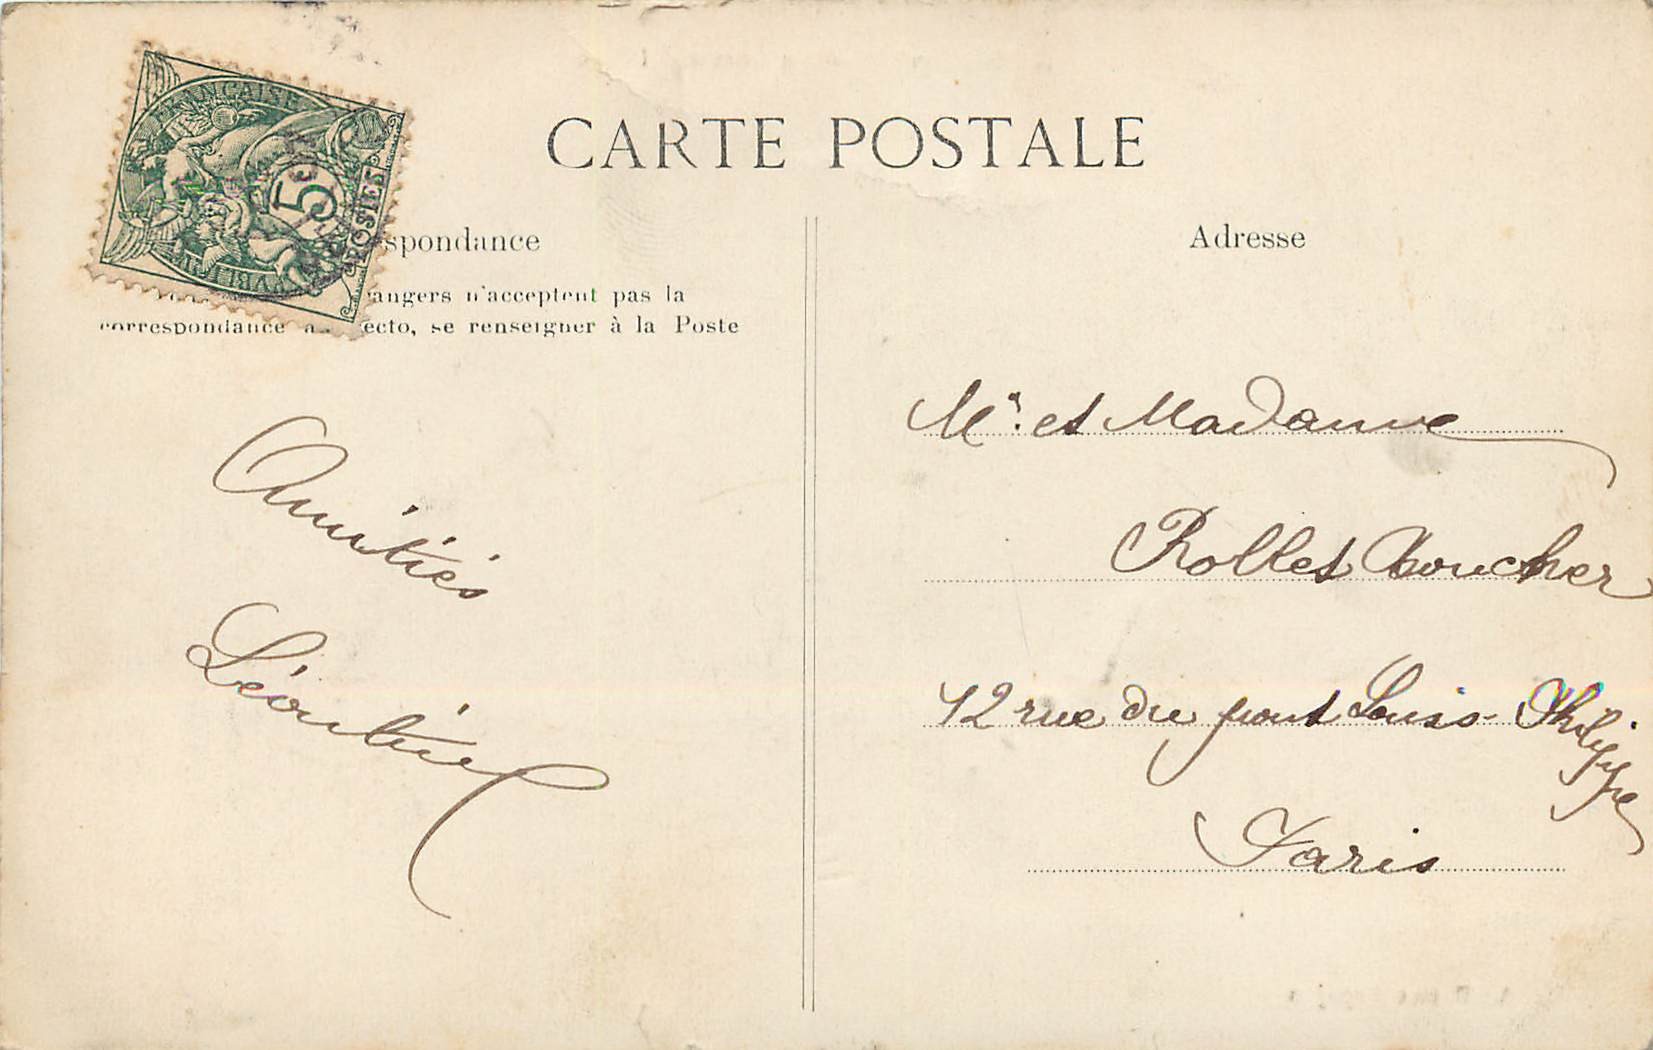 CARTE POSTALE
FRANÇAISE
5c
POSTES
spondance
angers n'acceptent pas la
correspondance ecto, se renseigner à la Poste
Adresse
Amitiés
Mr. et Madame
Rollet Boucher
12 rue du pont Louis-Philippe
Paris